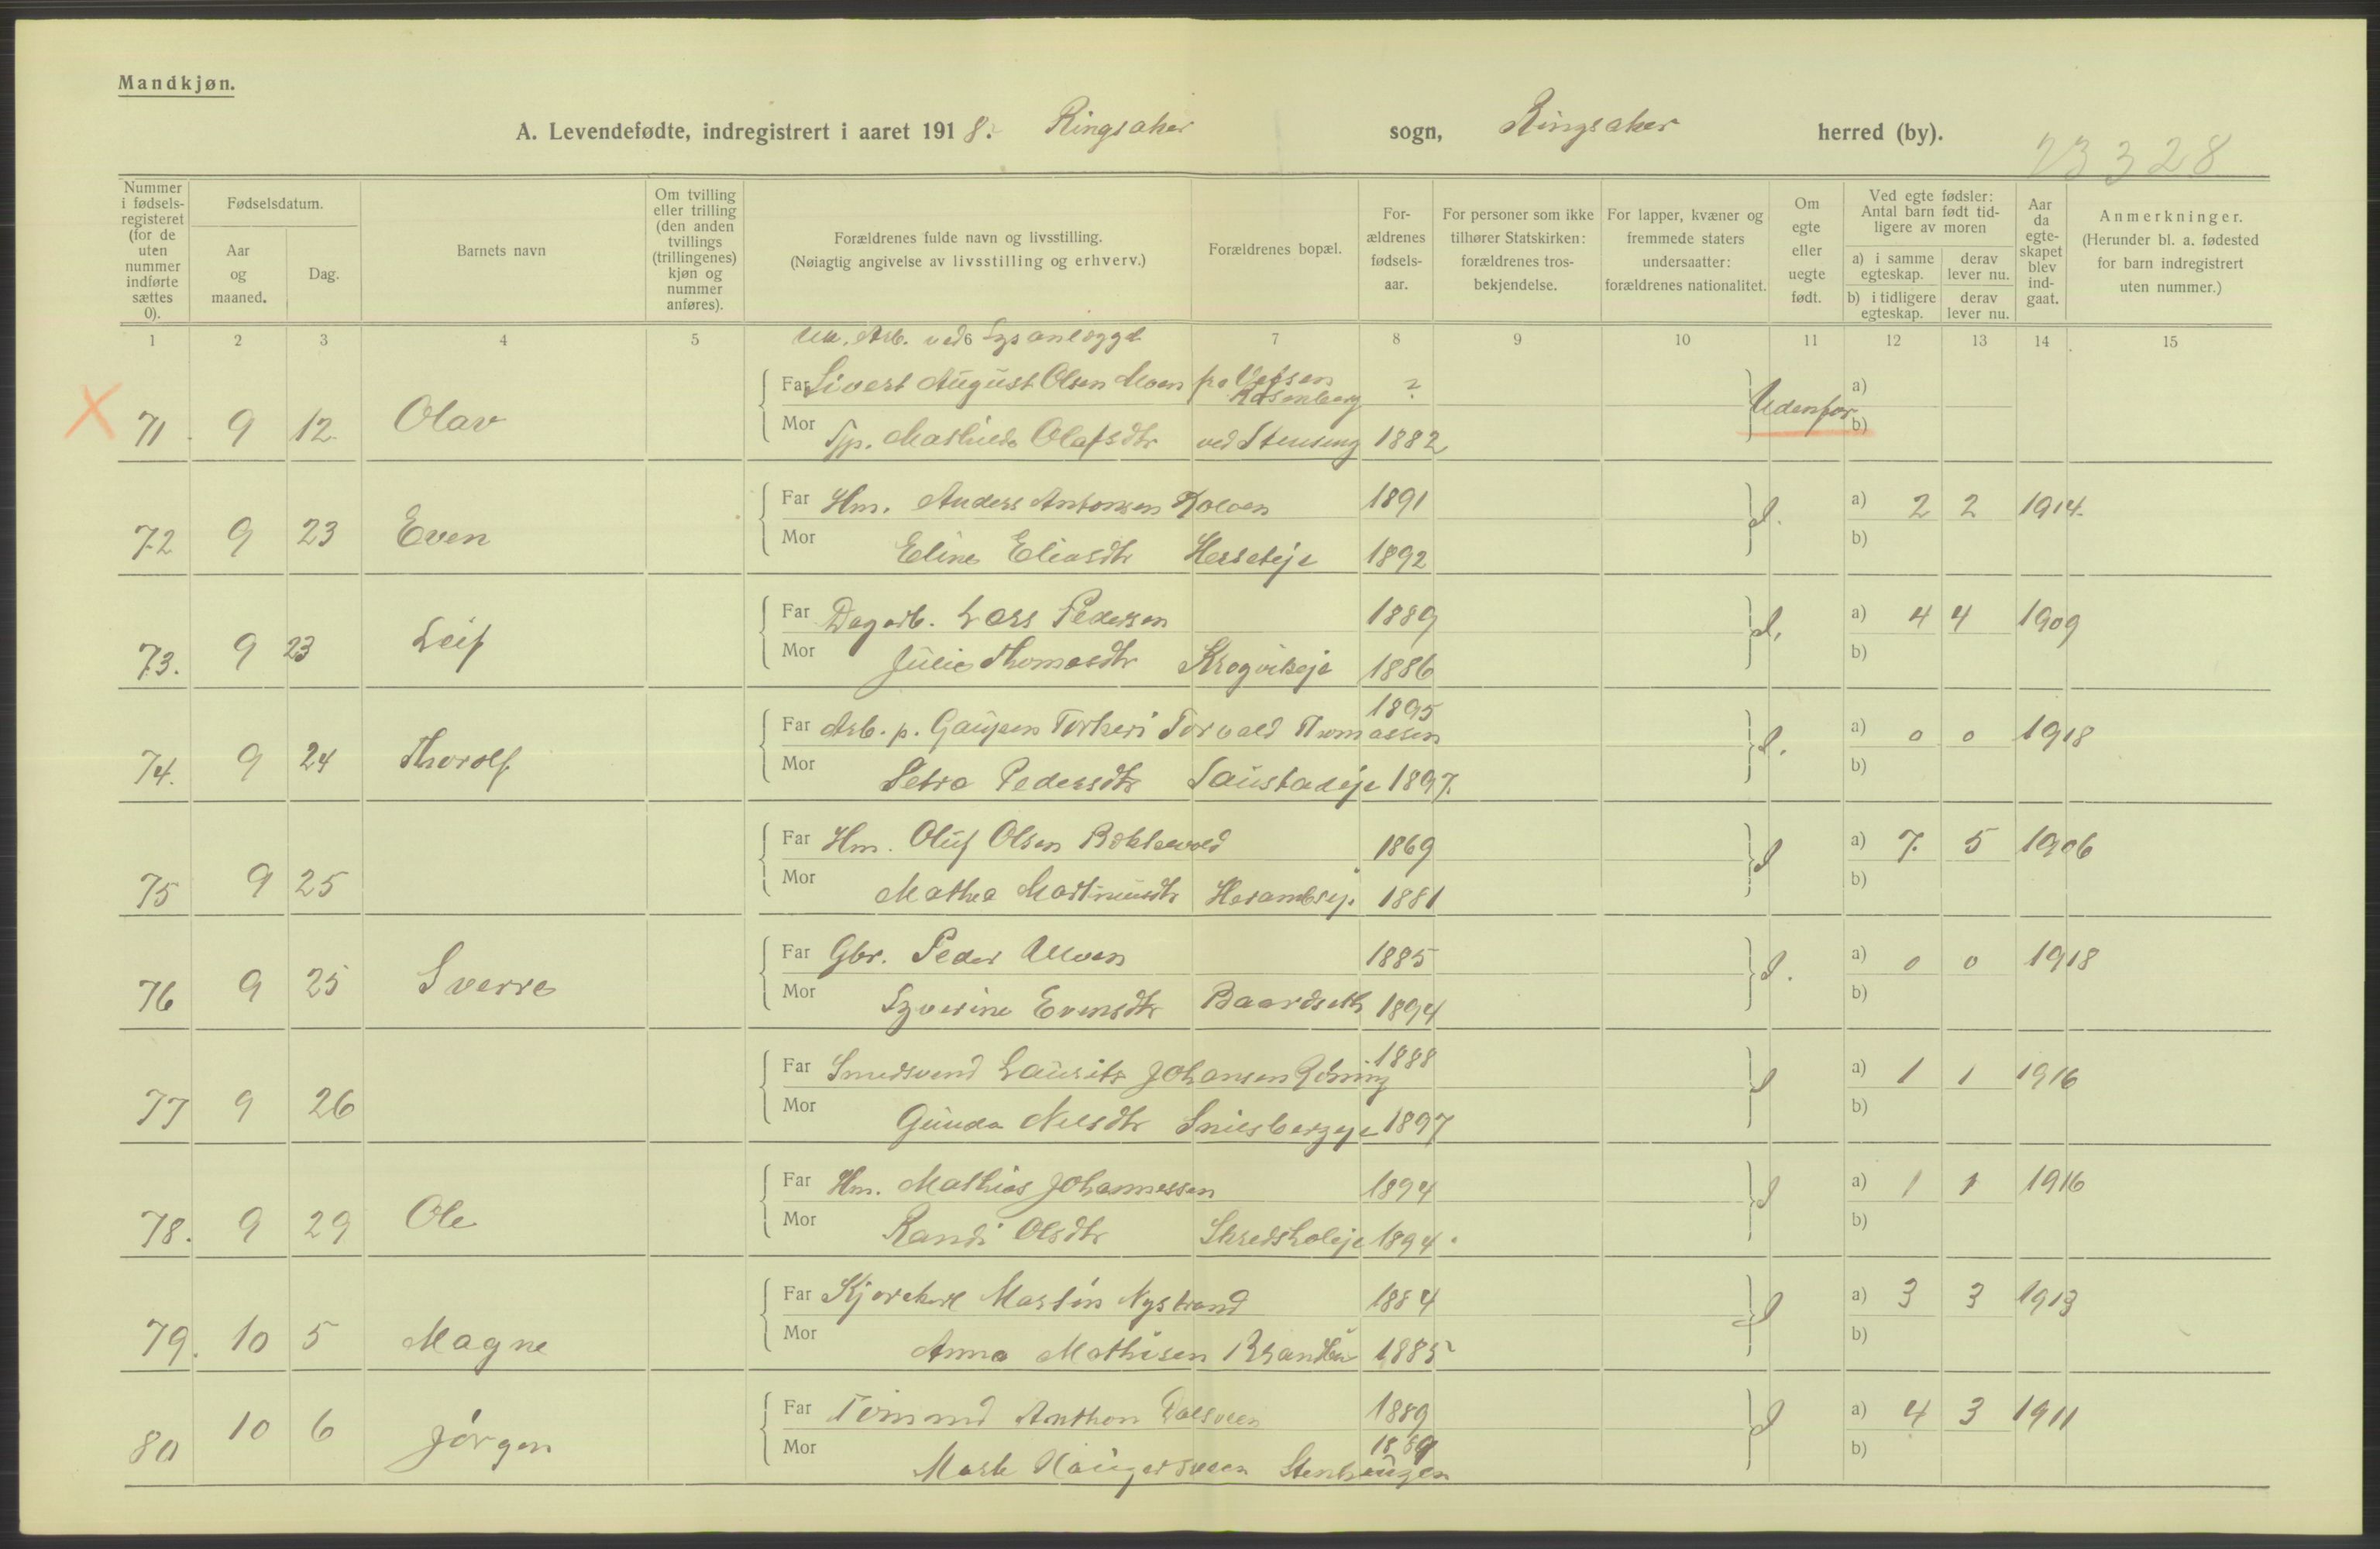 Mandkjøn.
A. Levendefødte, indregistrert i aaret 1918. Ringsaker sogn, Ringsaker herred (by).
23328
Nummer i fødsels-registeret (for de uten nummer indførte sættes 0).
Fødselsdatum.
Aar og maaned.
Dag.
Barnets navn
Om tvilling eller trilling (den anden tvillings (trillingenes) kjøn og nummer anføres).
Forældrenes fulde navn og livsstilling.
(Nøiagtig angivelse av livsstilling og erhverv.)
Forældrenes bopæl.
For-ældrenes fødsels-aar.
For personer som ikke tilhører Statskirken: forældrenes tros-bekjendelse.
For lapper, kvæner og fremmede staters undersaatter: forældrenes nationalitet.
Om egte eller uegte født.
Ved egte fødsler: Antal barn født tid-ligere av moren
a) i samme egteskap.
derav lever nu.
b) i tidligere egteskap.
derav lever nu.
Aar da egte-skapet blev ind-gaat.
Anmerkninger.
(Herunder bl. a. fødested for barn indregistrert uten nummer.)
1 2 3 4 5 6 7 8 9 10 11 12 13 14 15
Arb. ved Lysanlægget
X 71. 9 12 Olav Far Sivert August Olsen Moen fra Vefsen ? Udenfor a)
Rosenberg
Mor Mathilde Olafsdtr ved Stenseng 1882 b)
72 9 23 Even Far Hm. Anders Antonsen Kolven 1891 a) 2 2 1914
Mor Eline Eliasdtr 1892 b)
73. 9 23 Leif Far Dagarb. Lars Pedersen 1889 a) 4 4 1909
Mor Julie Thomasdtr Krogvikeje 1886 b)
74. 9 24 Thorolf Far Arb. p. Gaupen Torvald Thomassen 1895 a) 0 0 1918
Mor Petra Pedersdtr Taustadeje 1897. b)
75 9 25 Far Hm. Oluf Olsen 1869 a) 7 5 1906
Mor Mathea Martinusdtr 1881 b)
76 9 25 Sverre Far Gbr. Peder Moen 1885 a) 0 0 1918
Mor Syverine Evensdtr Baardseth 1894 b)
77 9 26 Far Smedsvend Laurits Johansen 1888 a) 1 1 1916
Mor Gunda Nilsdtr 1897 b)
78. 9 29 Ole Far Hm. Mathias Johannessen 1894 a) 1 1 1916
Mor Randi Olsdtr Skredsholeje 1894. b)
79. 10 5 Magne Far Martin Nystrand 1884 a) 3 3 1913
Mor Anna Mathisen 1885 b)
80 10 6 Jørgen Far Anthon Dalsveen 1889 a) 4 3 1911
Mor Haugersveen Stenhaugen 1889 b)